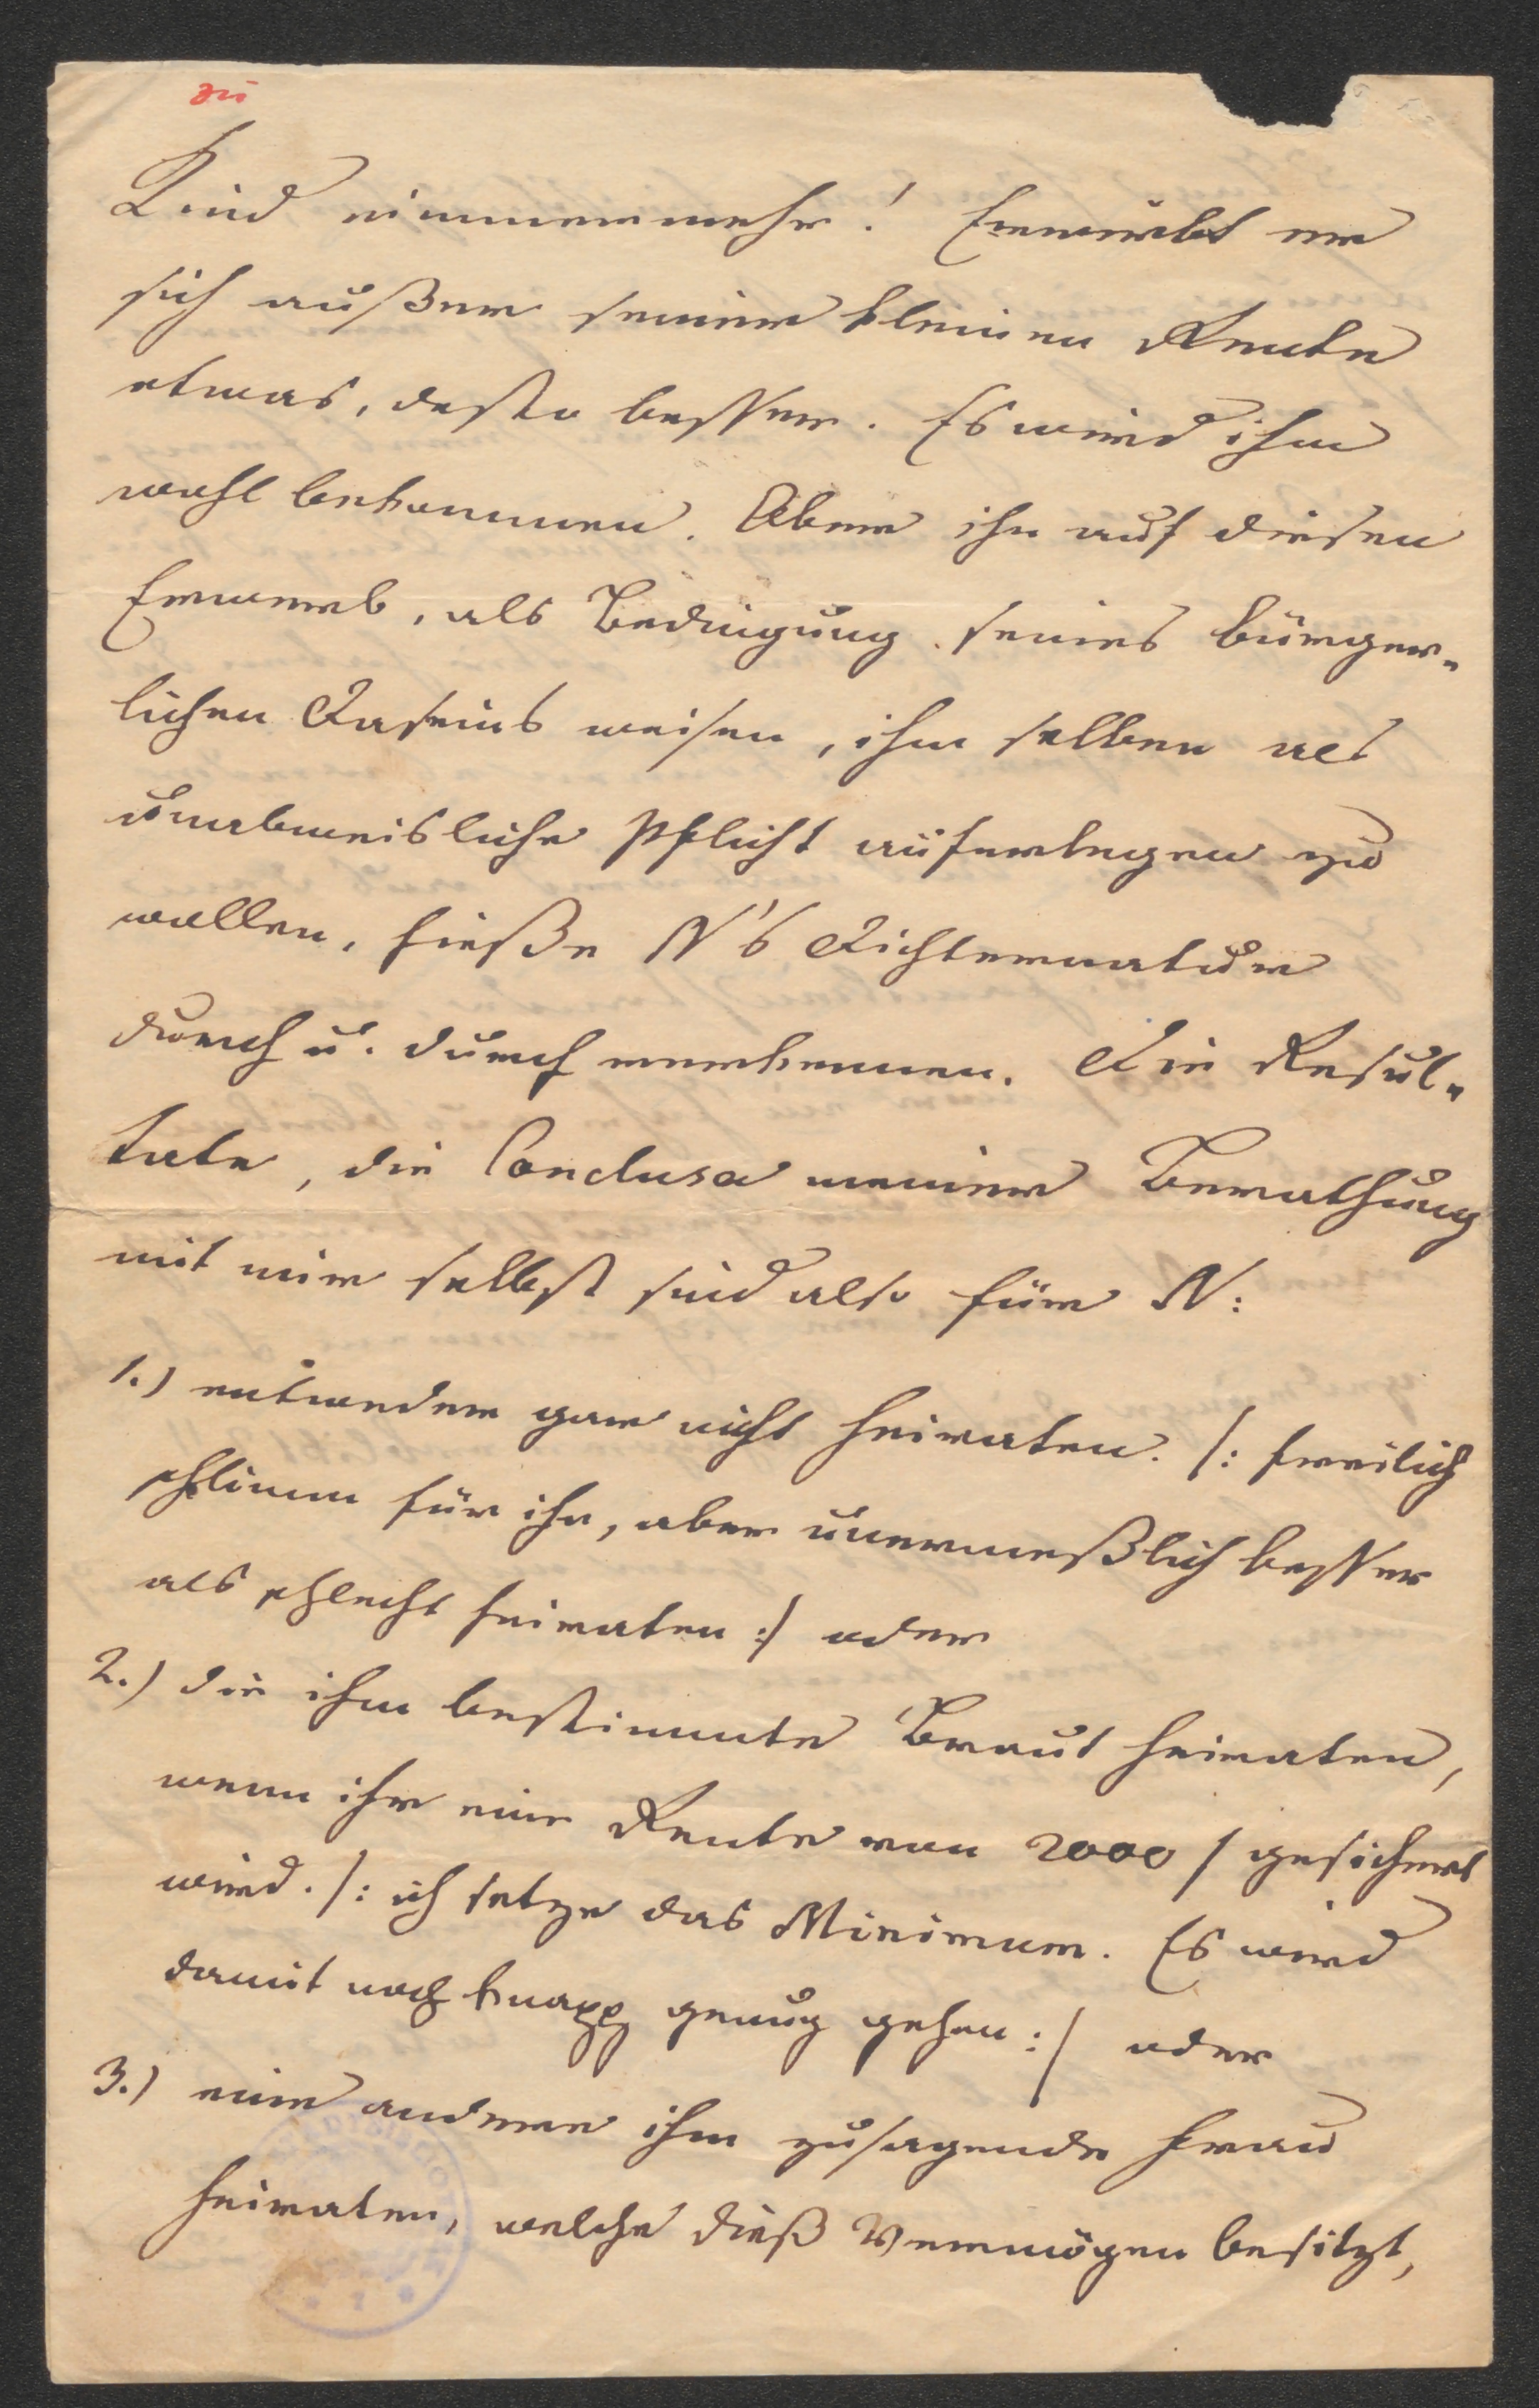 zu
Kind nimmermehr! Erwirbt er
sich außer seiner kleinen Rente
etwas, desto besser. Es wird ihm
wohl bekommen. Aber ihn auf diesen
Erwerb, als Bedingung seines bürger-
lichen Daseins weisen, ihm selben als
unabweisliche Pflicht auferlegen zu
wollen, hieße N's Dichternatur
durch u. durch verkennen. Die Resul-
tate, die Conclusa meiner Berathung
mit mir selbst sind also für N:
1.) entweder gar nicht heiraten. /: freilich
schlimm für ihn, aber unermeßlich besser
als schlecht heiraten :/ oder
2.) die ihm bestimmte Braut heiraten,
wenn ihr eine Rente von 2000 f gesichert
wird. /: ich setze das Minimum. Es wird
damit noch knapp genug gehen :/ oder
3.) eine andere ihm zusagende Frau
heiraten, welche dieß Vermögen besitzt,